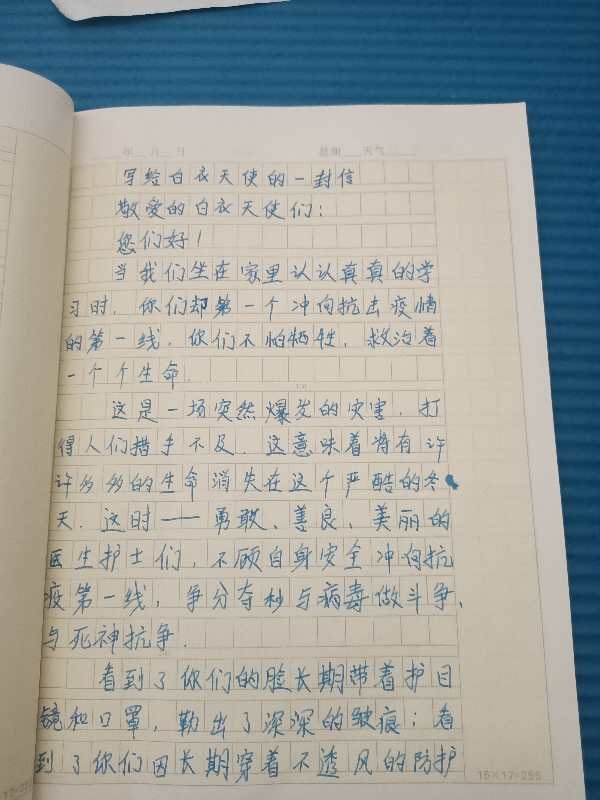 年 月 日 星期 天气
写给白衣天使的一封信
敬爱的白衣天使们：
您们好！
当我们坐在家里认认真真的学
习时，你们却第一个冲向抗击疫情
的第一线，你们不怕牺牲，救治着
一个个生命。
这是一场突然爆发的灾害，打
得人们措手不及，这意味着将有许
许多多的生命消失在这个严酷的冬
天，这时——勇敢、善良、美丽的
医生护士们，不顾自身安全冲向抗
疫第一线，争分夺秒与病毒做斗争、
与死神抗争。
看到了你们的脸长期带着护目
镜和口罩，勒出了深深的皱痕；看
到了你们因长期穿着不透风的防护
15×17=255